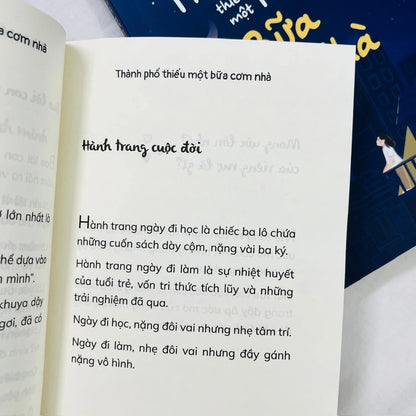 a cơm nhà
ớ lớn nhất là
hể dựa vào
mình".
khuya dậy
gơi, đã có
Thành phố thiếu một bữa cơm nhà
Hành trang cuộc đời
Hành trang ngày đi học là chiếc ba lô chứa
những cuốn sách dày cộm, nặng vài ba ký.
Hành trang ngày đi làm là sự nhiệt huyết
của tuổi trẻ, vốn tri thức tích lũy và những
trải nghiệm đã qua.
Ngày đi học, nặng đôi vai nhưng nhẹ tâm trí.
Ngày đi làm, nhẹ đôi vai nhưng đầy gánh
nặng vô hình.
thiế
một
Bữa
hà